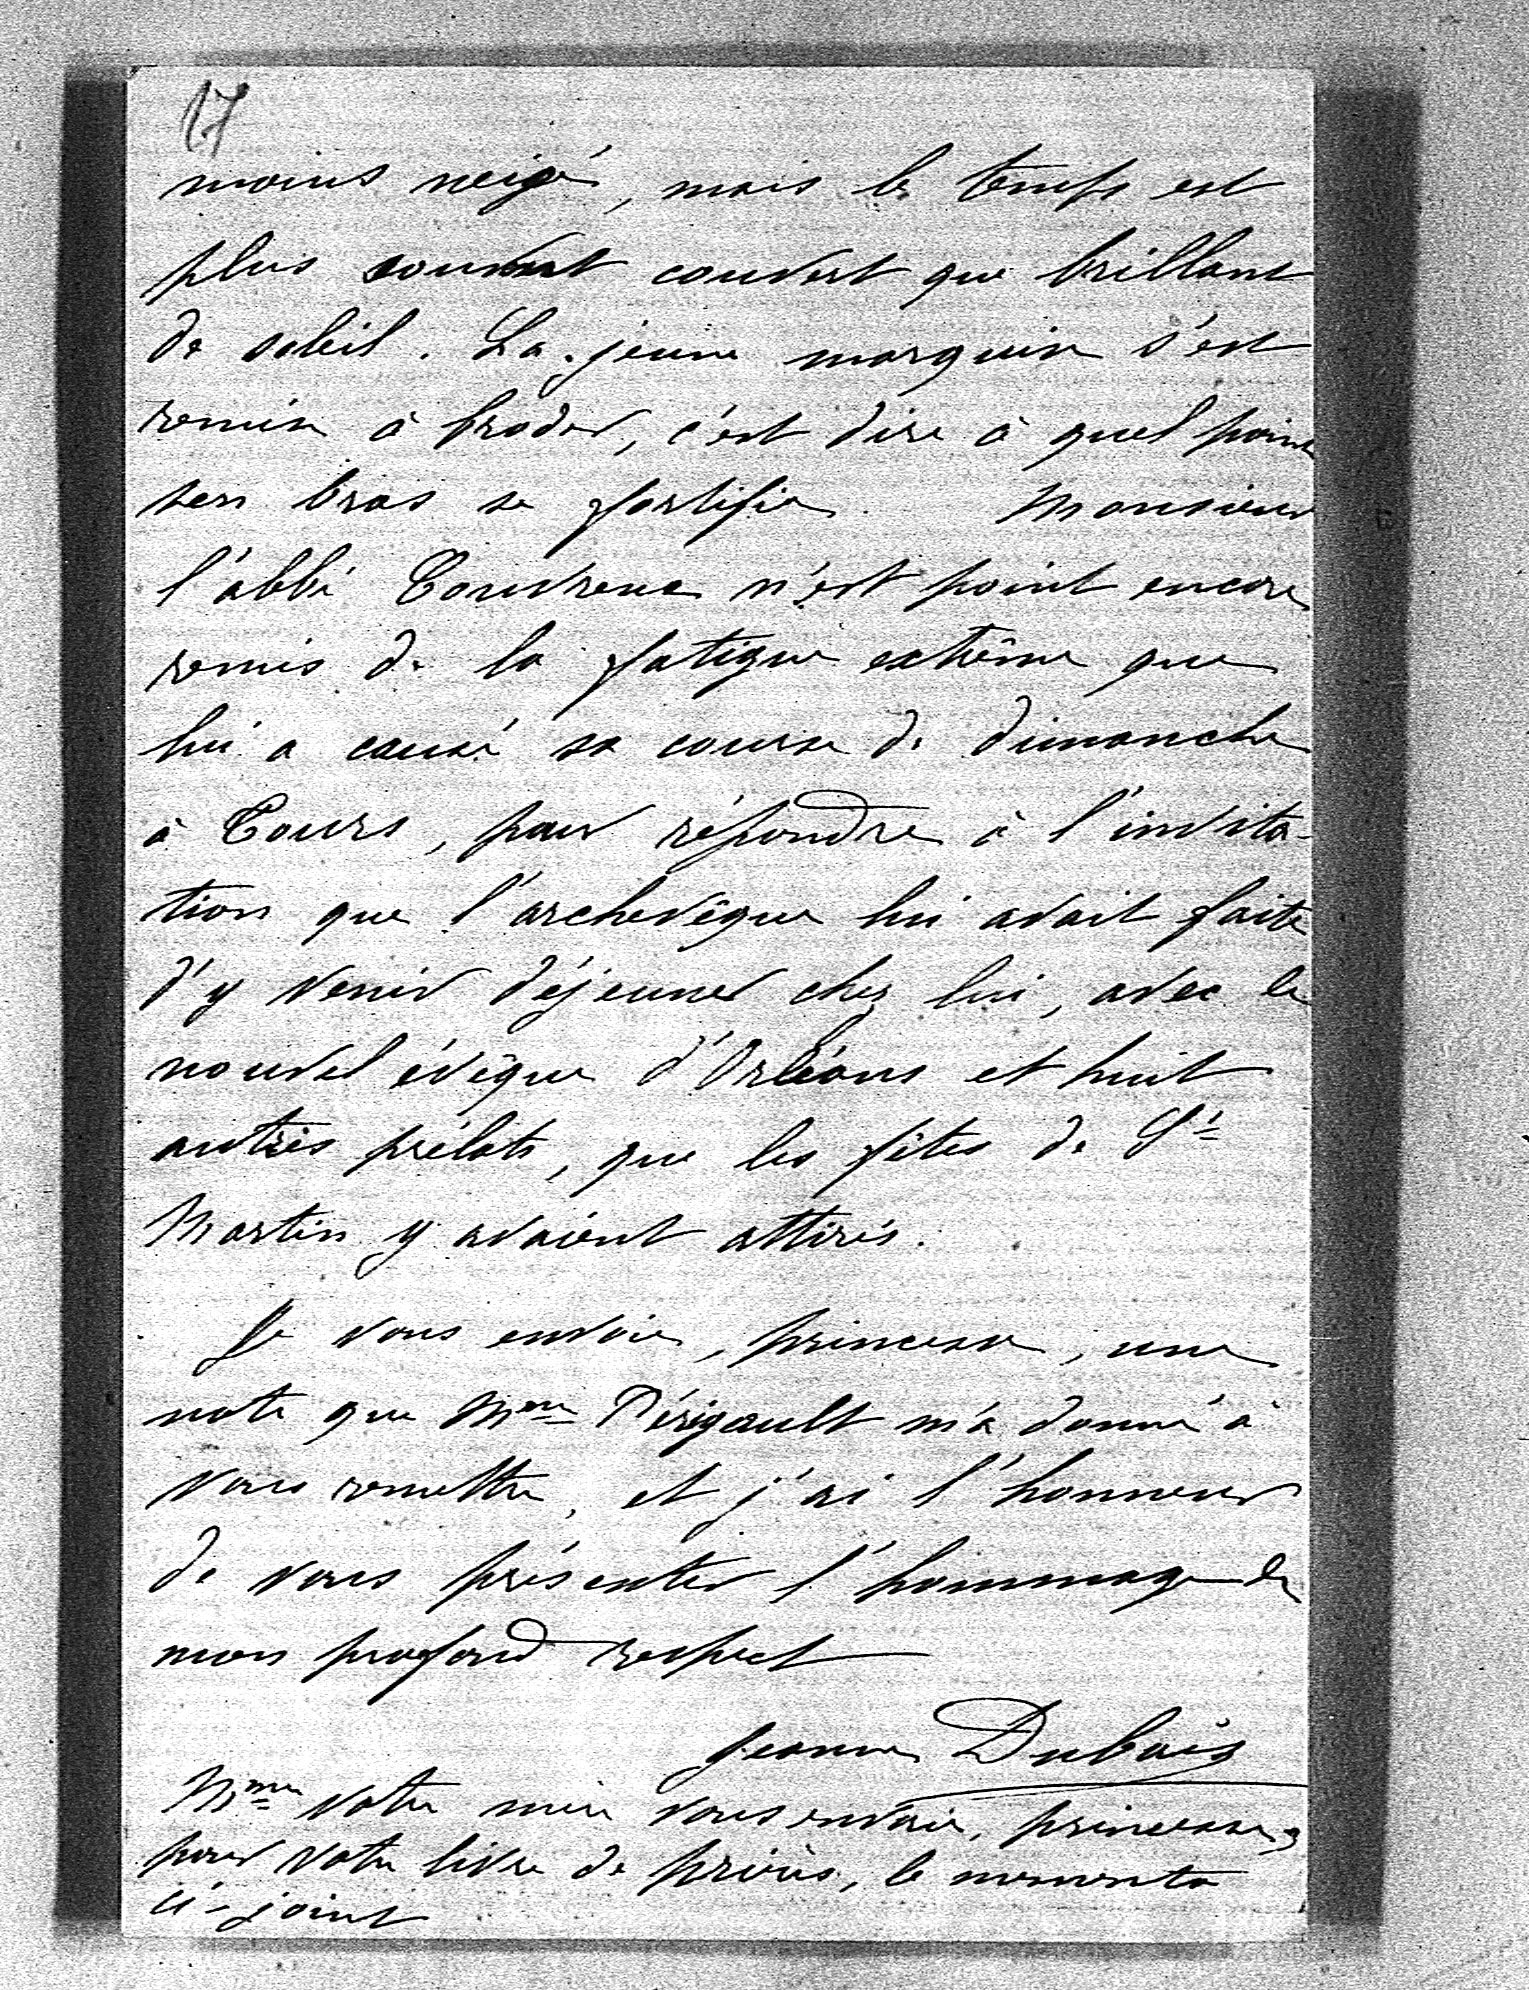 17
moins neigé, mais le temps est
plus souvent couvert que brillant
de soleil. La jeune marquise s'est
remise à broder, c'est dire à quel point
son bras se fortifie. Monsieur
l'abbé n'est point encore
remis de la fatigue extrême que
lui a causé sa course de dimanche
à Tours, pour répondre à l'invita-
tion que l'archevêque lui avait faite
d'y venir déjeuner chez lui, avec le
nouvel évêque d'Orléans et huit
autres prélats, que les fêtes de St
Martin y avaient attirés.
Je vous envoie, princesse, une
note que Mme Périgault m'a donné à
vous remettre, et j'ai l'honneur
de vous présenter l'hommage de
mon profond respect
Jeanne Dubois
Mme votre mère vous envoie, princesse,
pour votre livre de prières, le memento
ci-joint